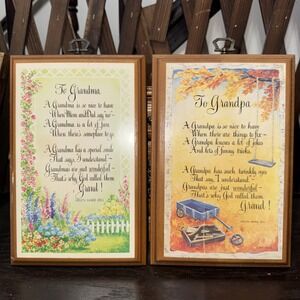 To Grandma
A Grandma is so nice to have
When Mom and Dad say no -
A Grandma is a lot of fun
When there's someplace to go.
A Grandma has a special smile
That says, "I understand" -
Grandmas are just wonderful -
That's why God called them
Grand!
To Grandpa
A Grandpa is so nice to have
When there are things to fix -
A Grandpa knows a lot of jokes
And lots of funny tricks.
A Grandpa has such twinkly eyes
That say, "I understand" -
Grandpas are just wonderful -
That's why God called them
Grand!